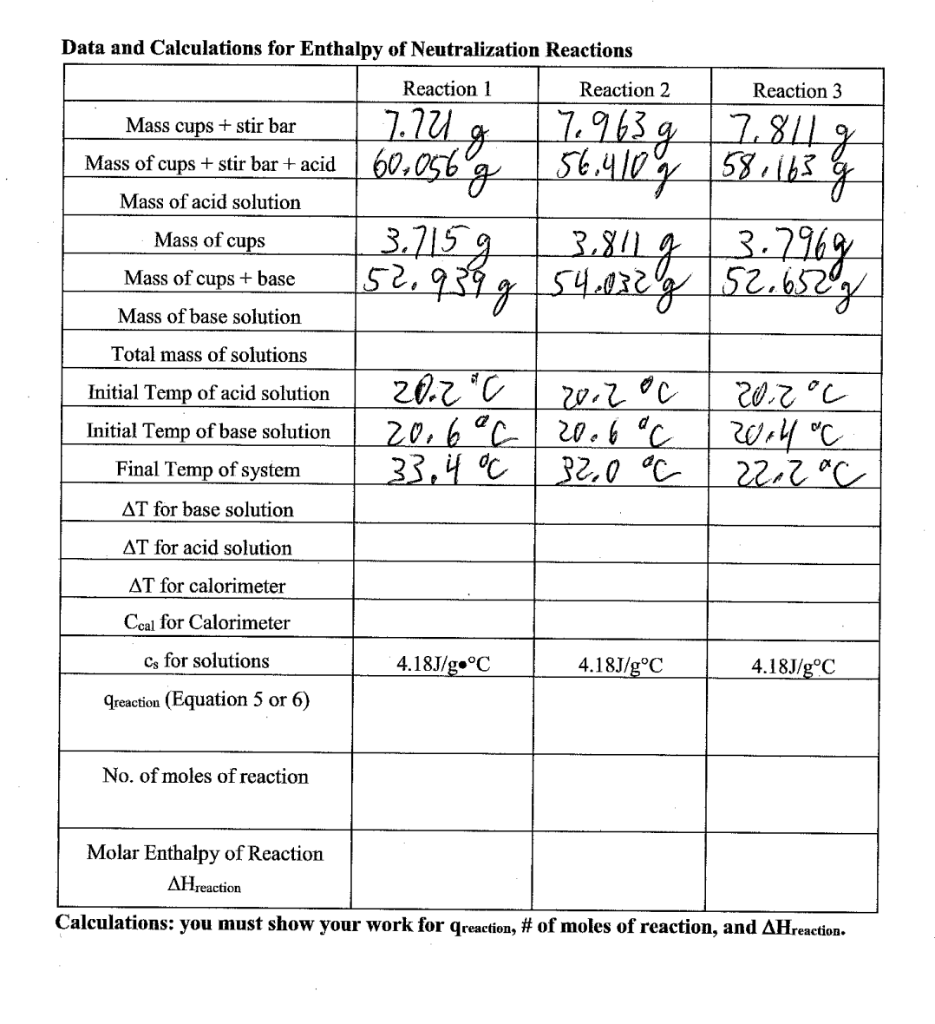 Data and Calculations for Enthalpy of Neutralization Reactions
Reaction 1 Reaction 2 Reaction 3
Mass cups + stir bar 7.721 g 7.963 g 7.811 g
Mass of cups + stir bar + acid 60.056 g 56.410 g 58.163 g
Mass of acid solution
Mass of cups 3.715 g 3.811 g 3.796 g
Mass of cups + base 52.939 g 54.032 g 52.652 g
Mass of base solution
Total mass of solutions
Initial Temp of acid solution 20.2 °C 20.2 °C 20.2 °C
Initial Temp of base solution 20.6 °C 20.6 °C 20.4 °C
Final Temp of system 33.4 °C 32.0 °C 22.2 °C
ΔT for base solution
ΔT for acid solution
ΔT for calorimeter
Ccal for Calorimeter
cs for solutions 4.18J/g•°C 4.18J/g°C 4.18J/g°C
qreaction (Equation 5 or 6)
No. of moles of reaction
Molar Enthalpy of Reaction
ΔHreaction
Calculations: you must show your work for qreaction, # of moles of reaction, and ΔHreaction.